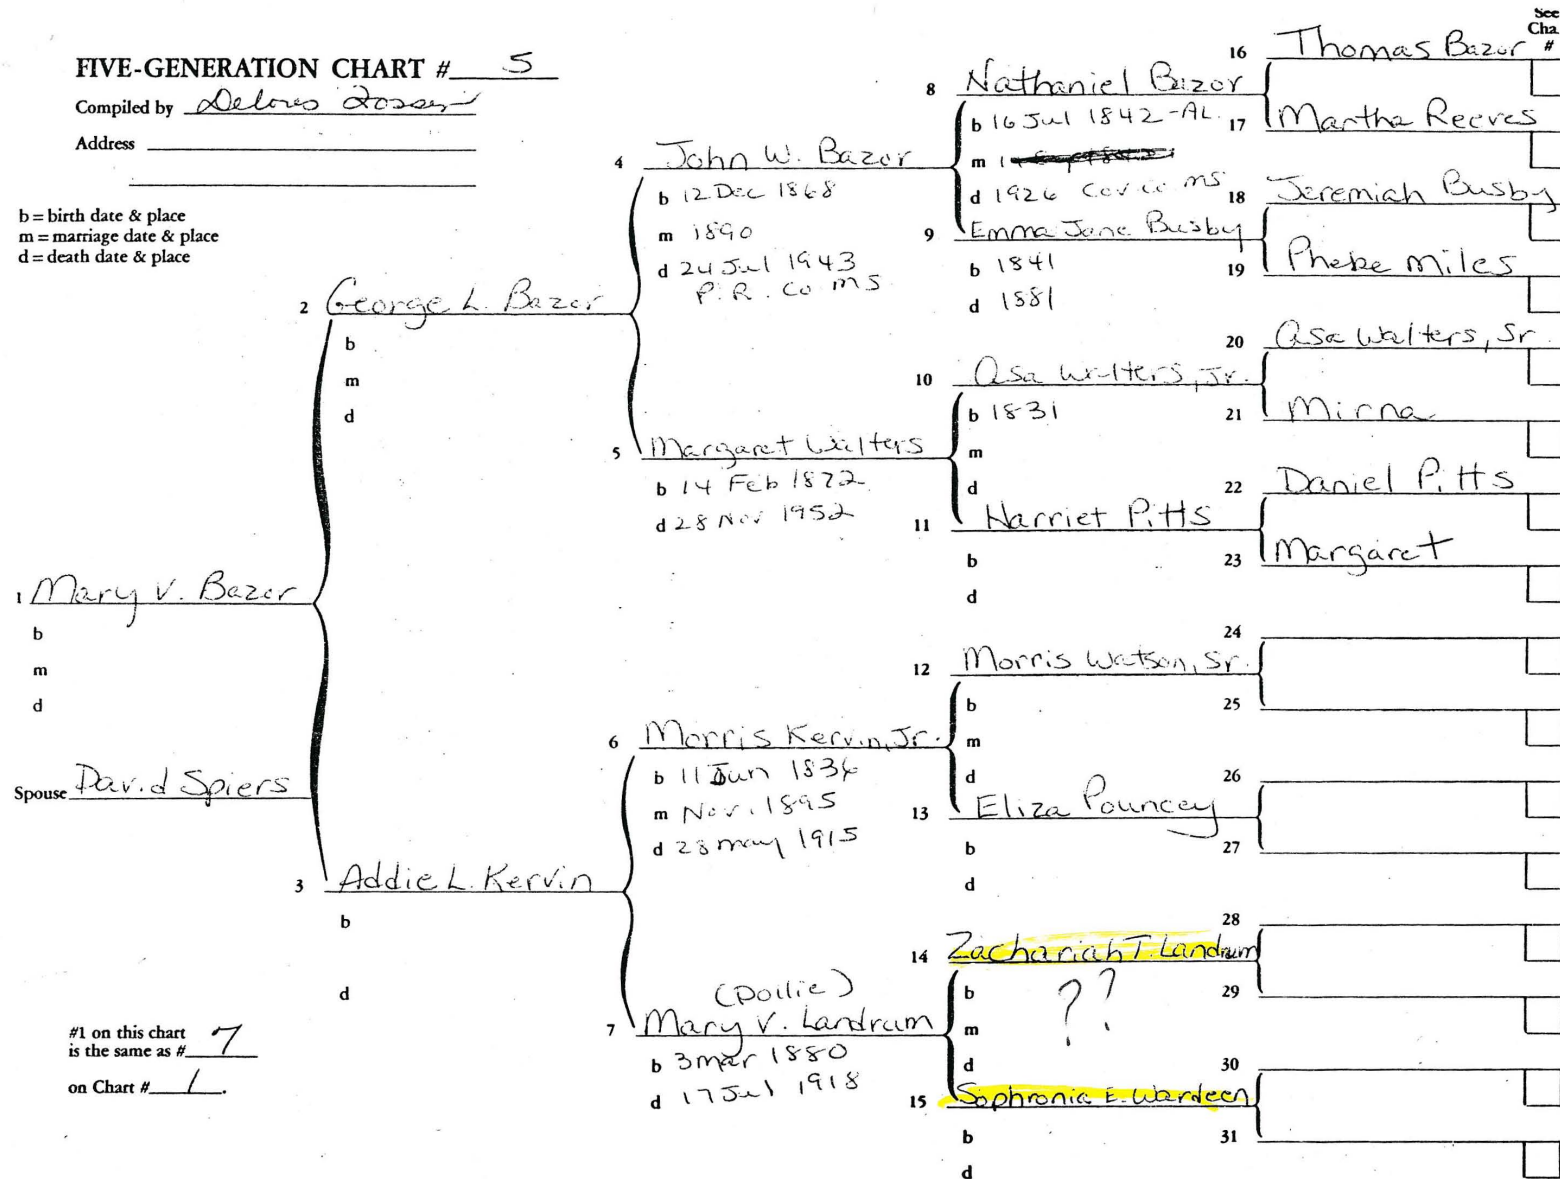 See
Cha
#
FIVE-GENERATION CHART # 5
Compiled by Delores
Address
b = birth date & place
m = marriage date & place
d = death date & place
1 Mary V. Bazor
b
m
d
Spouse David Spiers
#1 on this chart
is the same as # 7
on Chart # 1.
2 George L. Bazor
b
m
d
3 Addie L. Kervin
b
d
4 John W. Bazor
b 12 Dec 1868
m 1890
d 24 Jul 1943
P.R. Co MS
5 Margaret Walters
b 14 Feb 1872
d 28 Nov 1952
6 Morris Kervin, Jr.
b 11 Jun 1836
m Nov. 1895
d 28 May 1915
(Dollie)
7 Mary V. Landrum
b 3 Mar 1880
d 17 Jul 1918
8 Nathaniel Bazor
b 16 Jul 1842 - AL.
m
d 1926 Cov Co MS
9 Emma Jane Busby
b 1841
d 1881
10 Asa Walters, Jr.
b 1831
m
d
11 Harriet Pitts
b
d
12 Morris Watson, Sr.
b
m
d
13 Eliza Pouncey
b
d
14 Zachariah T. Landrum
b ??
m
d
15 Sophronia E. Wardeen
b
d
16 Thomas Bazor
17 Martha Reeves
18 Jeremiah Busby
19 Phebe Miles
20 Asa Walters, Sr.
21 Mirna
22 Daniel Pitts
23 Margaret
24
25
26
27
28
29
30
31